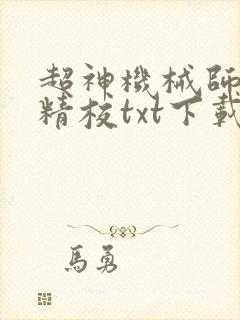 超神機械師
精校txt下載
馬勇